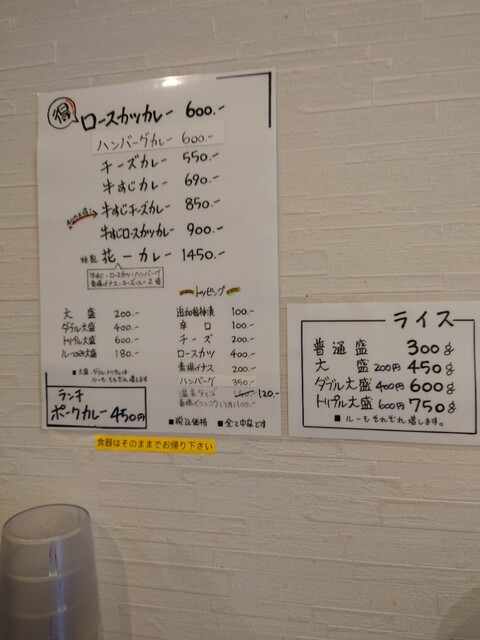 得 ロースカツカレー 600.-
ハンバーグカレー 600.-
チーズカレー 550.-
牛すじカレー 690.-
牛すじチーズカレー 850.-
牛すじロースカツカレー 900.-
特製 花一カレー 1450.-
牛すじ・ロースカツ・ハンバーグ
素揚げナス・チーズ・ルー2倍
大盛 200.-
ダブル大盛 400.-
トリプル大盛 600.-
ルーのみ大盛 180.-
■大盛、ダブル、トリプルは
ルーもそれぞれ増します
ランチ
ポークカレー 450円
トッピング
追加福神漬 100.-
辛口 100.-
チーズ 200.-
ロースカツ 400.-
素揚げナス 200.-
ハンバーグ 350.-
温泉タマゴ 120.-
素揚げニンニク 100.-
■税込価格 ■全て中辛です
食器はそのままでお帰り下さい
ライス
普通盛 300g
大盛 200円 450g
ダブル大盛 400円 600g
トリプル大盛 600円 750g
■ルーもそれぞれ増します。